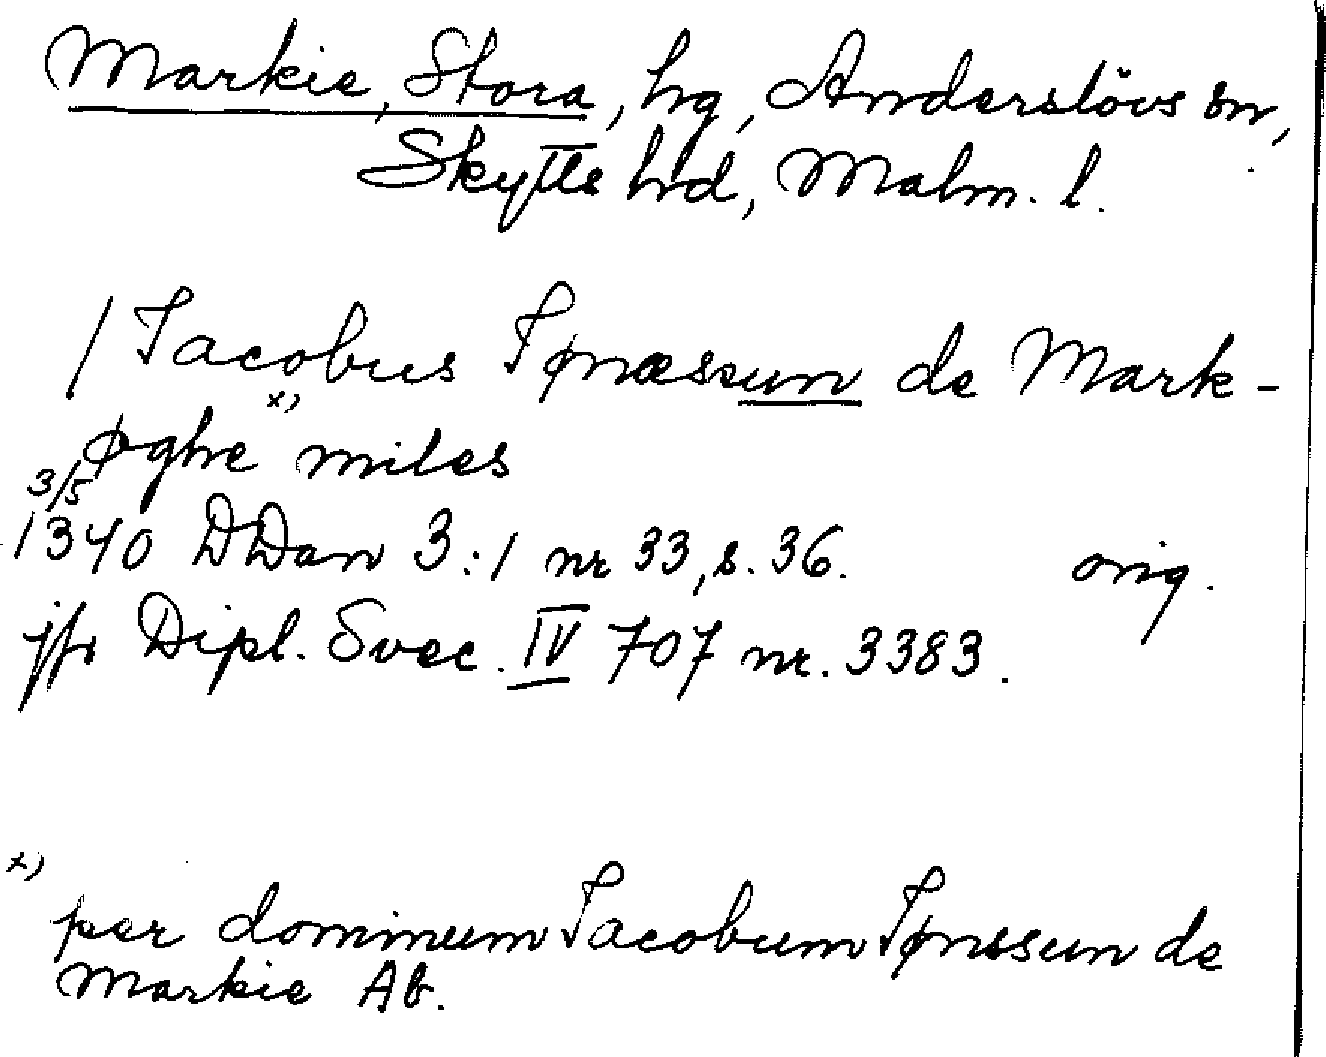 Markie, Stora, hg, Anderslövs sn,
Skytts hrd, Malm. l.
/ Jacobus Jønæssun de Mark-
øghe x) miles
3/5
1340 DDan 3:1 nr 33, s. 36. orig.
jfr Dipl. Svec. IV 707 nr. 3383.
x)
per dominum Jacobum Jønssun de
Markie Ab.